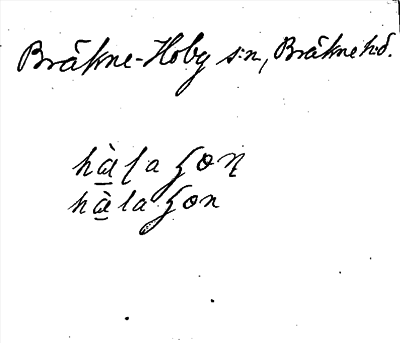 Bräkne-Hoby s:n, Bräkne hd.
hàla ҕon
hàla ҕon